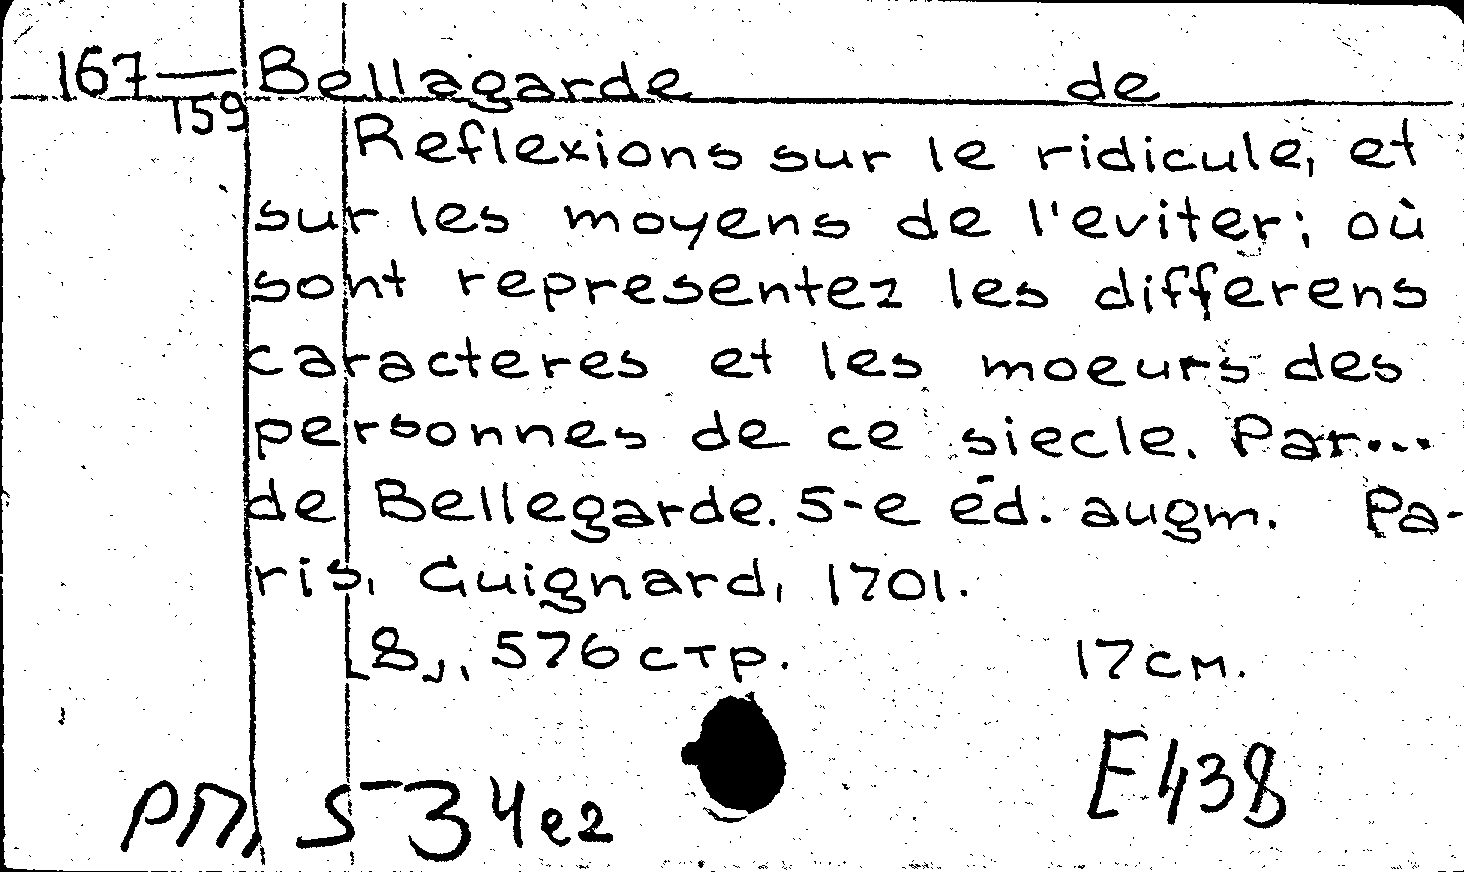 167— Bellagarde de
159
Reflexions sur le ridicule, et
sur les moyens de l'eviter; où
sont representez les differens
caracteres et les moeurs des
personnes de ce siecle. Par...
de Bellegarde. 5-e ed. augm. Pa-
ris, Guignard, 1701.
[8], 576 стр. 17см.
E438
РМ 5-34е2